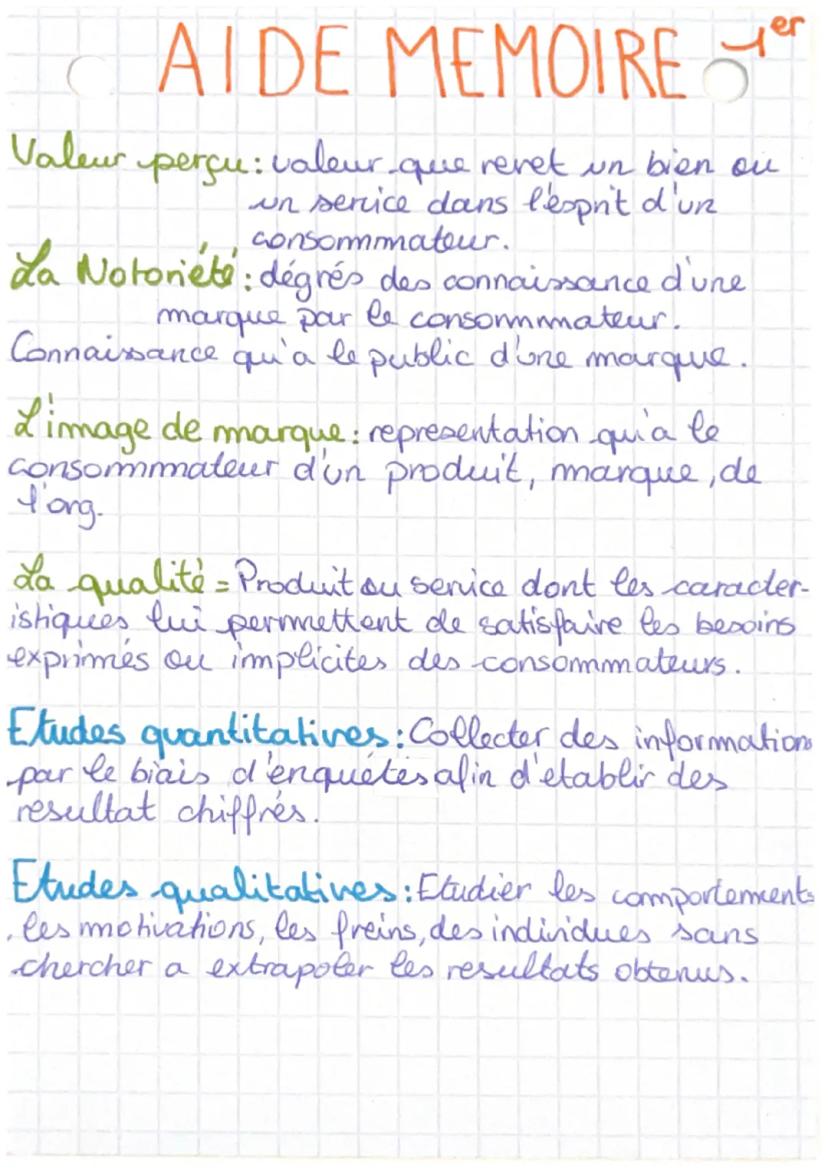 AIDE MEMOIRE 1er
Valeur perçu : valeur que revet un bien ou
un service dans l'esprit d'un
consommmateur.
La Notoriété : dégrés des connaissance d'une
marque par le consommmateur.
Connaissance qu'a le public d'une marque.
L'image de marque : representation qu'a le
consommmateur d'un produit, marque, de
l'org.
La qualité = Produit ou service dont les caracter-
istiques lui permettent de satisfaire les besoins
exprimés ou implicites des consommateurs.
Etudes quantitatives : Collecter des informations
par le biais d'enquêtes afin d'etablir des
resultat chiffrés.
Etudes qualitatives : Etudier les comportements
, les motivations, les freins, des individues sans
chercher a extrapoler les resultats obtenus.